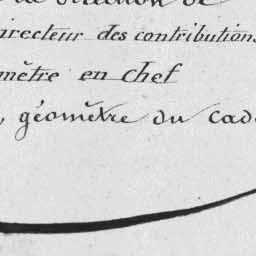 de Direction de
irecteur des contributions
mètre en chef
, géomètre du cad